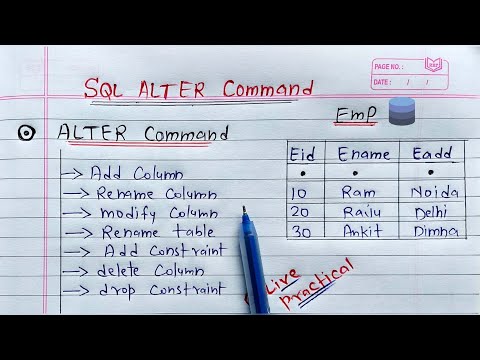 PAGE NO. :
DATE : / /
SQL ALTER Command
ALTER Command
Add Column
Rename Column
modify Column
Rename table
Add Constraint
delete Column
drop constraint
EmP
Eid Ename Eadd
10 Ram Noida
20 Raju Delhi
30 Ankit Dimna
Live
Practical